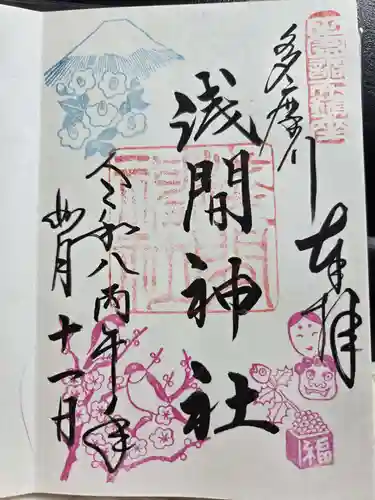 多摩川
奉拝
浅間神社
令和八丙午年
如月
十一日
福